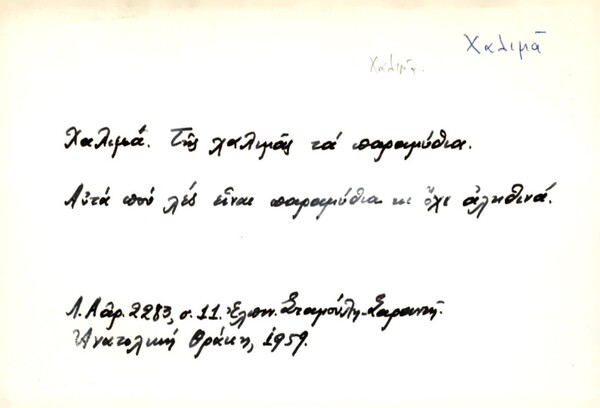 Χαλιμᾶ
Χαλιμᾶ.
Χαλιμά. Τῆς χαλιμᾶς τά παραμύθια.
Αὐτά πού λές εἶναι παραμύθια κι ὄχι ἀληθινά.
Λ.Α. ἀρ. 2283, σ. 11. Ἐλπιν. Σταμούλη-Σαραντῆ.
Ἀνατολική Θράκη, 1959.